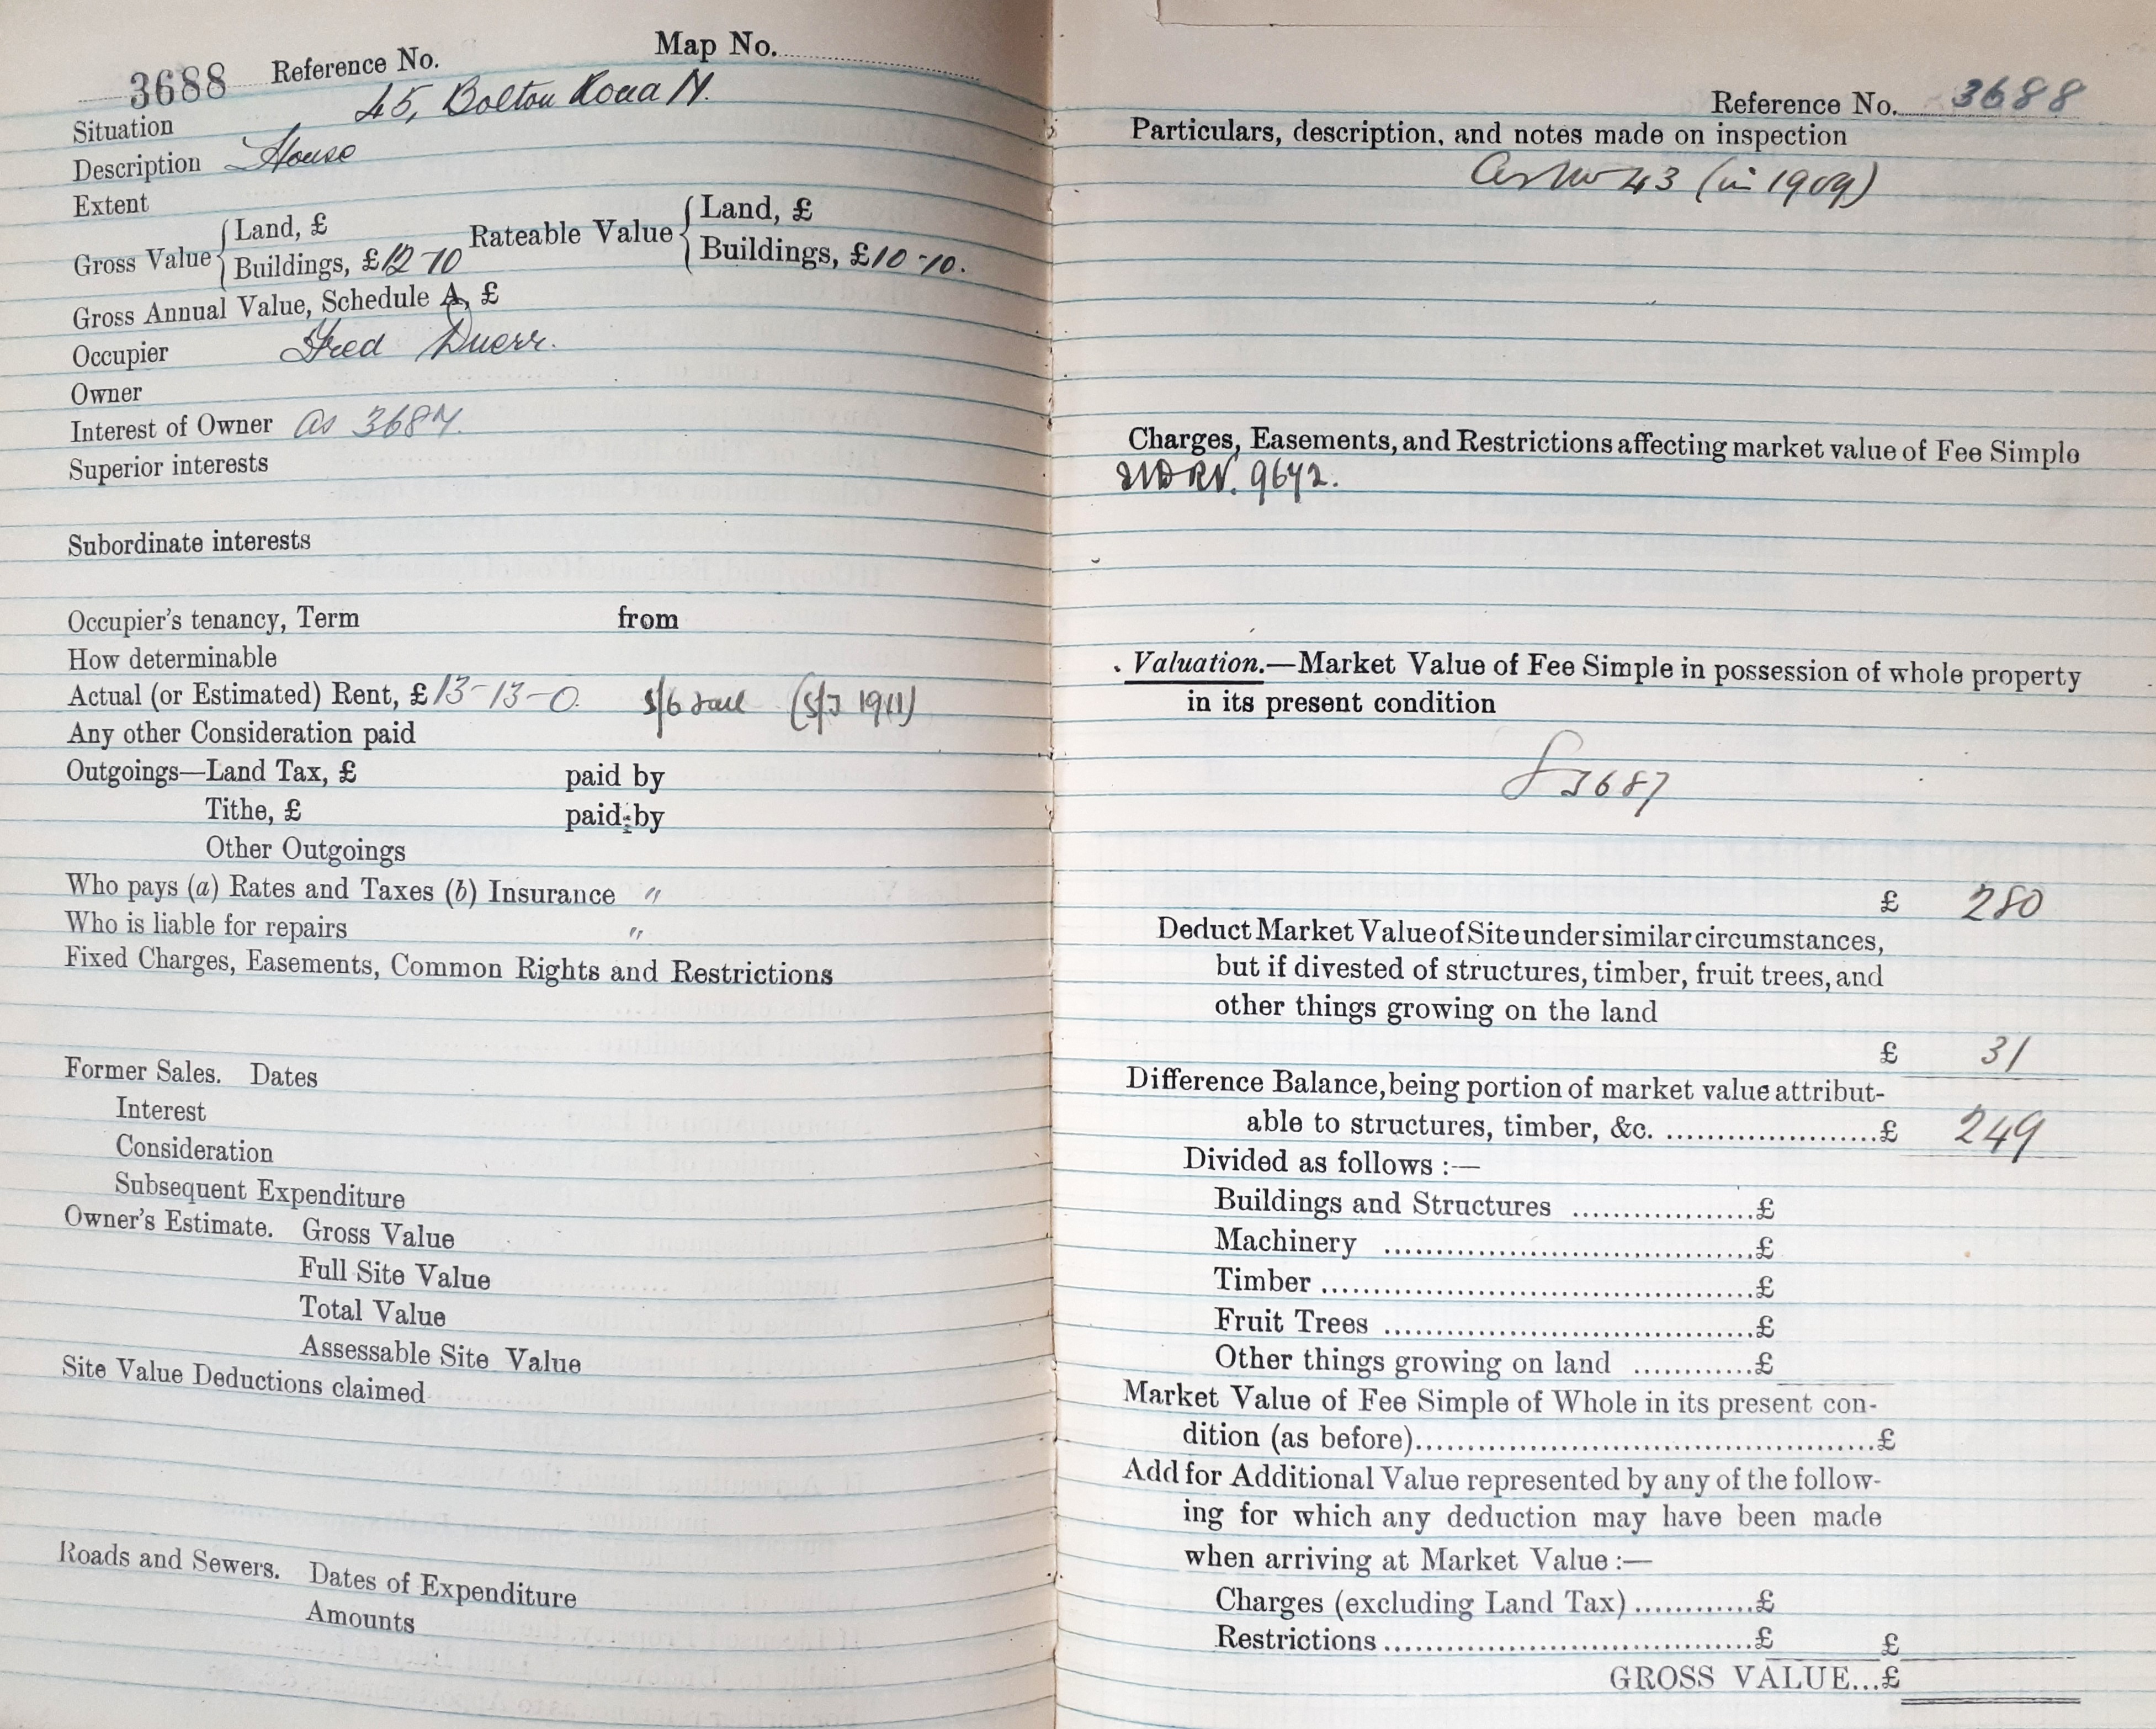 Map No.
3688 Reference No.
Situation 45, Bolton Road N.
Description House
Extent
Gross Value { Land, £
Buildings, £12-10 Rateable Value { Land, £
Buildings, £10-10.
Gross Annual Value, Schedule A, £
Occupier Fred Duerr.
Owner
Interest of Owner as 3687.
Superior interests
Subordinate interests
Occupier's tenancy, Term from
How determinable
Actual (or Estimated) Rent, £13-13-0. 5/6 (5/3 1911)
Any other Consideration paid
Outgoings—Land Tax, £ paid by
Tithe, £ paid by
Other Outgoings
Who pays (a) Rates and Taxes (b) Insurance "
Who is liable for repairs "
Fixed Charges, Easements, Common Rights and Restrictions
Former Sales. Dates
Interest
Consideration
Subsequent Expenditure
Owner's Estimate. Gross Value
Full Site Value
Total Value
Assessable Site Value
Site Value Deductions claimed
Roads and Sewers. Dates of Expenditure
Amounts
Reference No. 3688
Particulars, description, and notes made on inspection
As No 43 (in 1909)
Charges, Easements, and Restrictions affecting market value of Fee Simple
9642.
Valuation.—Market Value of Fee Simple in possession of whole property
in its present condition
3687
£ 280
Deduct Market Value of Site under similar circumstances,
but if divested of structures, timber, fruit trees, and
other things growing on the land
£ 31
Difference Balance, being portion of market value attribut-
able to structures, timber, &c. .....................£ 249
Divided as follows :—
Buildings and Structures ..................£
Machinery ..................................£
Timber .........................................£
Fruit Trees ...................................£
Other things growing on land ............£
Market Value of Fee Simple of Whole in its present con-
dition (as before)............................................£
Add for Additional Value represented by any of the follow-
ing for which any deduction may have been made
when arriving at Market Value :—
Charges (excluding Land Tax) ............£
Restrictions ....................................£ £
GROSS VALUE...£